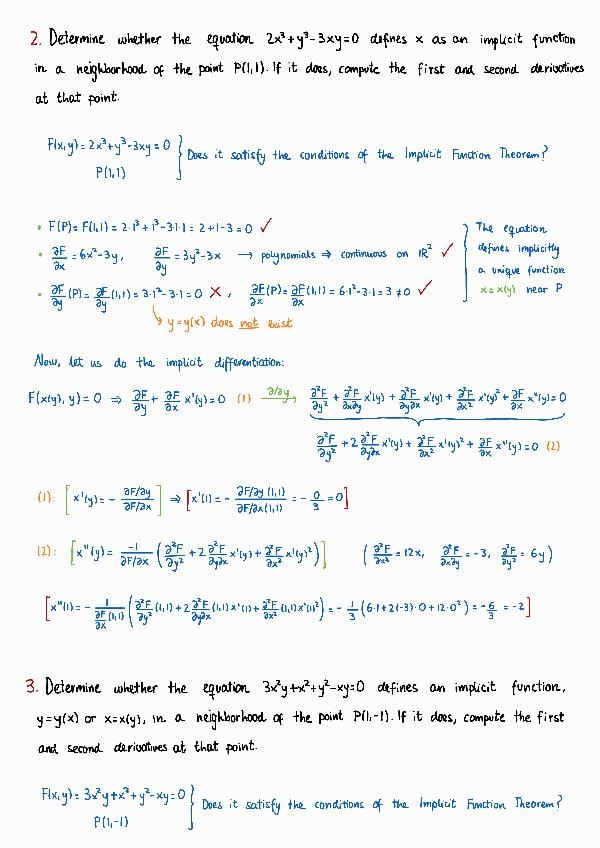 2. Determine whether the equation 2x³+y³-3xy=0 defines x as an implicit function
in a neighborhood of the point P(1,1). If it does, compute the first and second derivatives
at that point.
F(x,y)=2x³+y³-3xy=0
P(1,1)
Does it satisfy the conditions of the Implicit Function Theorem?
• F(P)=F(1,1)=2·1³+1³-3·1·1=2+1-3=0 ✓
• ∂F/∂x=6x²-3y, ∂F/∂y=3y²-3x → polynomials ⇒ continuous on ℝ² ✓
• ∂F/∂y(P)=∂F/∂y(1,1)=3·1²-3·1=0 ✗, ∂F/∂x(P)=∂F/∂x(1,1)=6·1²-3·1=3≠0 ✓
↳ y=y(x) does not exist
The equation
defines implicitly
a unique function
x=x(y) near P
Now, let us do the implicit differentiation:
F(x(y),y)=0 ⇒ ∂F/∂y+∂F/∂x x'(y)=0 (1) ∂/∂y→ ∂²F/∂y²+∂²F/∂x∂y x'(y)+∂²F/∂y∂x x'(y)+∂²F/∂x² x'(y)²+∂F/∂x x''(y)=0
∂²F/∂y²+2 ∂²F/∂y∂x x'(y)+∂²F/∂x² x'(y)²+∂F/∂x x''(y)=0 (2)
(1): [x'(y)=-∂F/∂y / ∂F/∂x ⇒ [x'(1)=-∂F/∂y(1,1) / ∂F/∂x(1,1)=-0/3=0]
(2): [x''(y)=-1/∂F/∂x (∂²F/∂y²+2 ∂²F/∂y∂x x'(y)+∂²F/∂x² x'(y)²)] (∂²F/∂x²=12x, ∂²F/∂x∂y=-3, ∂²F/∂y²=6y)
[x''(1)=-1/∂F/∂x(1,1) (∂²F/∂y²(1,1)+2 ∂²F/∂y∂x(1,1)x'(1)+∂²F/∂x²(1,1)x'(1)²)=-1/3(6·1+2(-3)·0+12·0²)=-6/3=-2]
3. Determine whether the equation 3x²y+x²+y²-xy=0 defines an implicit function,
y=y(x) or x=x(y), in a neighborhood of the point P(1,-1). If it does, compute the first
and second derivatives at that point.
F(x,y)=3x²y+x²+y²-xy=0
P(1,-1)
Does it satisfy the conditions of the Implicit Function Theorem?